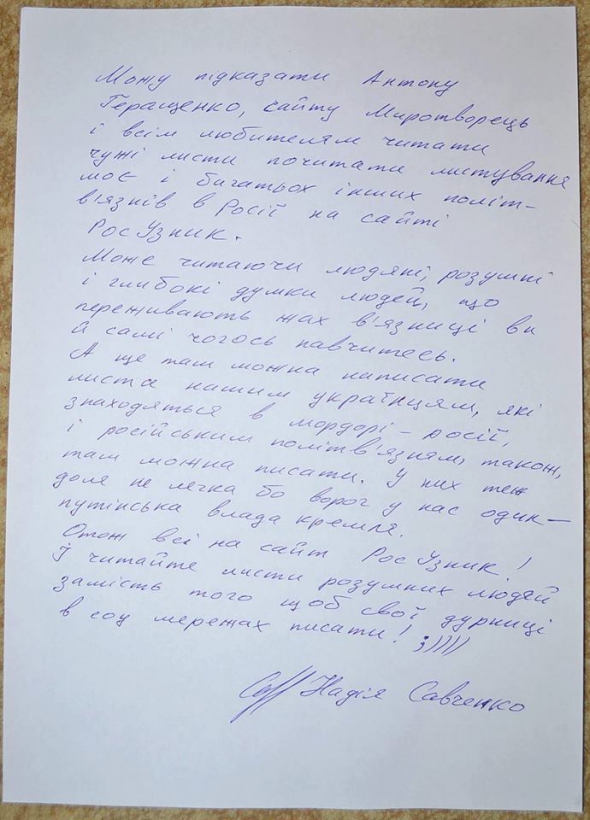 Можу підказати Антону
Геращенко, сайту Миротворець
і всім любителям читати
чужі листи почитати листування
моє і багатьох інших політ-
в'язнів в Росії на сайті
РосУзник.
Може читаючи людяні, розумні
і глибокі думки людей, що
переживають жах в'язниці ви
й самі чогось навчитесь.
А ще там можна написати
листа нашим українцям, які
знаходяться в мордорі – росії,
і російським політв'язням, також,
там можна писати. У них теж
доля не легка бо ворог у нас один –
путінська влада кремля.
Отож всі на сайт РосУзник!
І читайте листи розумних людей
замість того щоб свої дурниці
в соц мережах писати! ;)))))
Надія Савченко